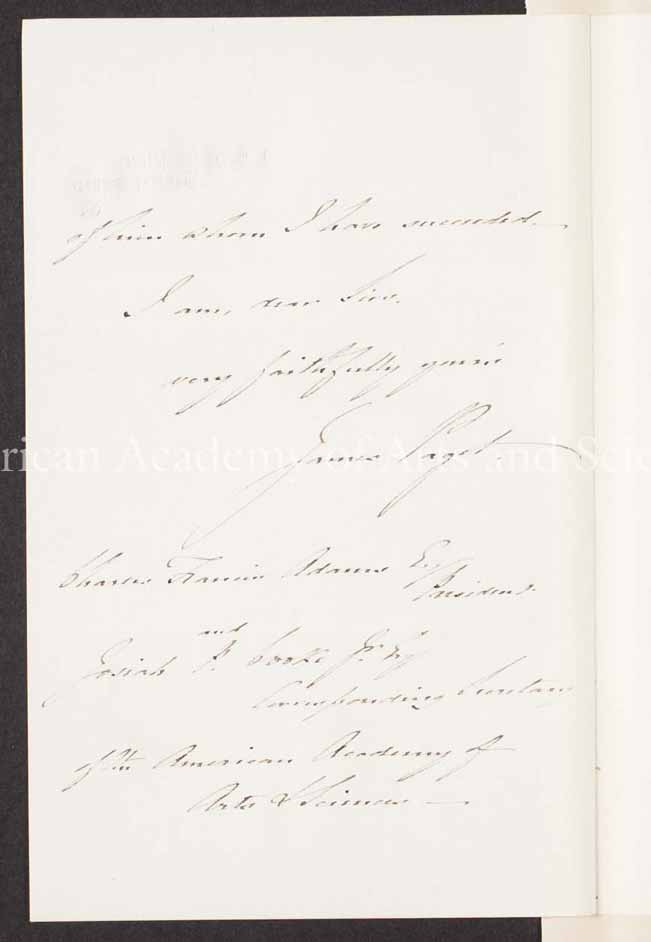 of him whom I have succeeded.
I am, dear Sirs,
very faithfully yours
James Paget.
Charles Francis Adams Esq
President
and
Josiah P. Cooke Jr. Esq
Corresponding Secretary
of the American Academy of
Arts & Sciences
American Academy of Arts and Scie